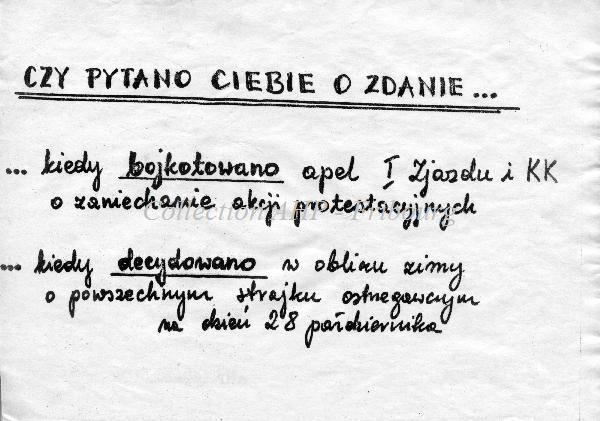 CZY PYTANO CIEBIE O ZDANIE...
... kiedy bojkotowano apel I Zjazdu i KK
o zaniechanie akcji protestacyjnych
Collection AHP - Fribourg
... kiedy decydowano w obliczu zimy
o powszechnym strajku ostrzegawczym
na dzień 28 października